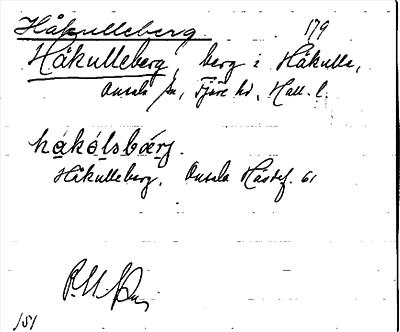 Håkulleberg. 179
Håkulleberg, berg i Håkulla,
Onsala sn, Fjäre hd, Hall. l.
hákálsbærj.
Håkulleberg. Onsala 61
151